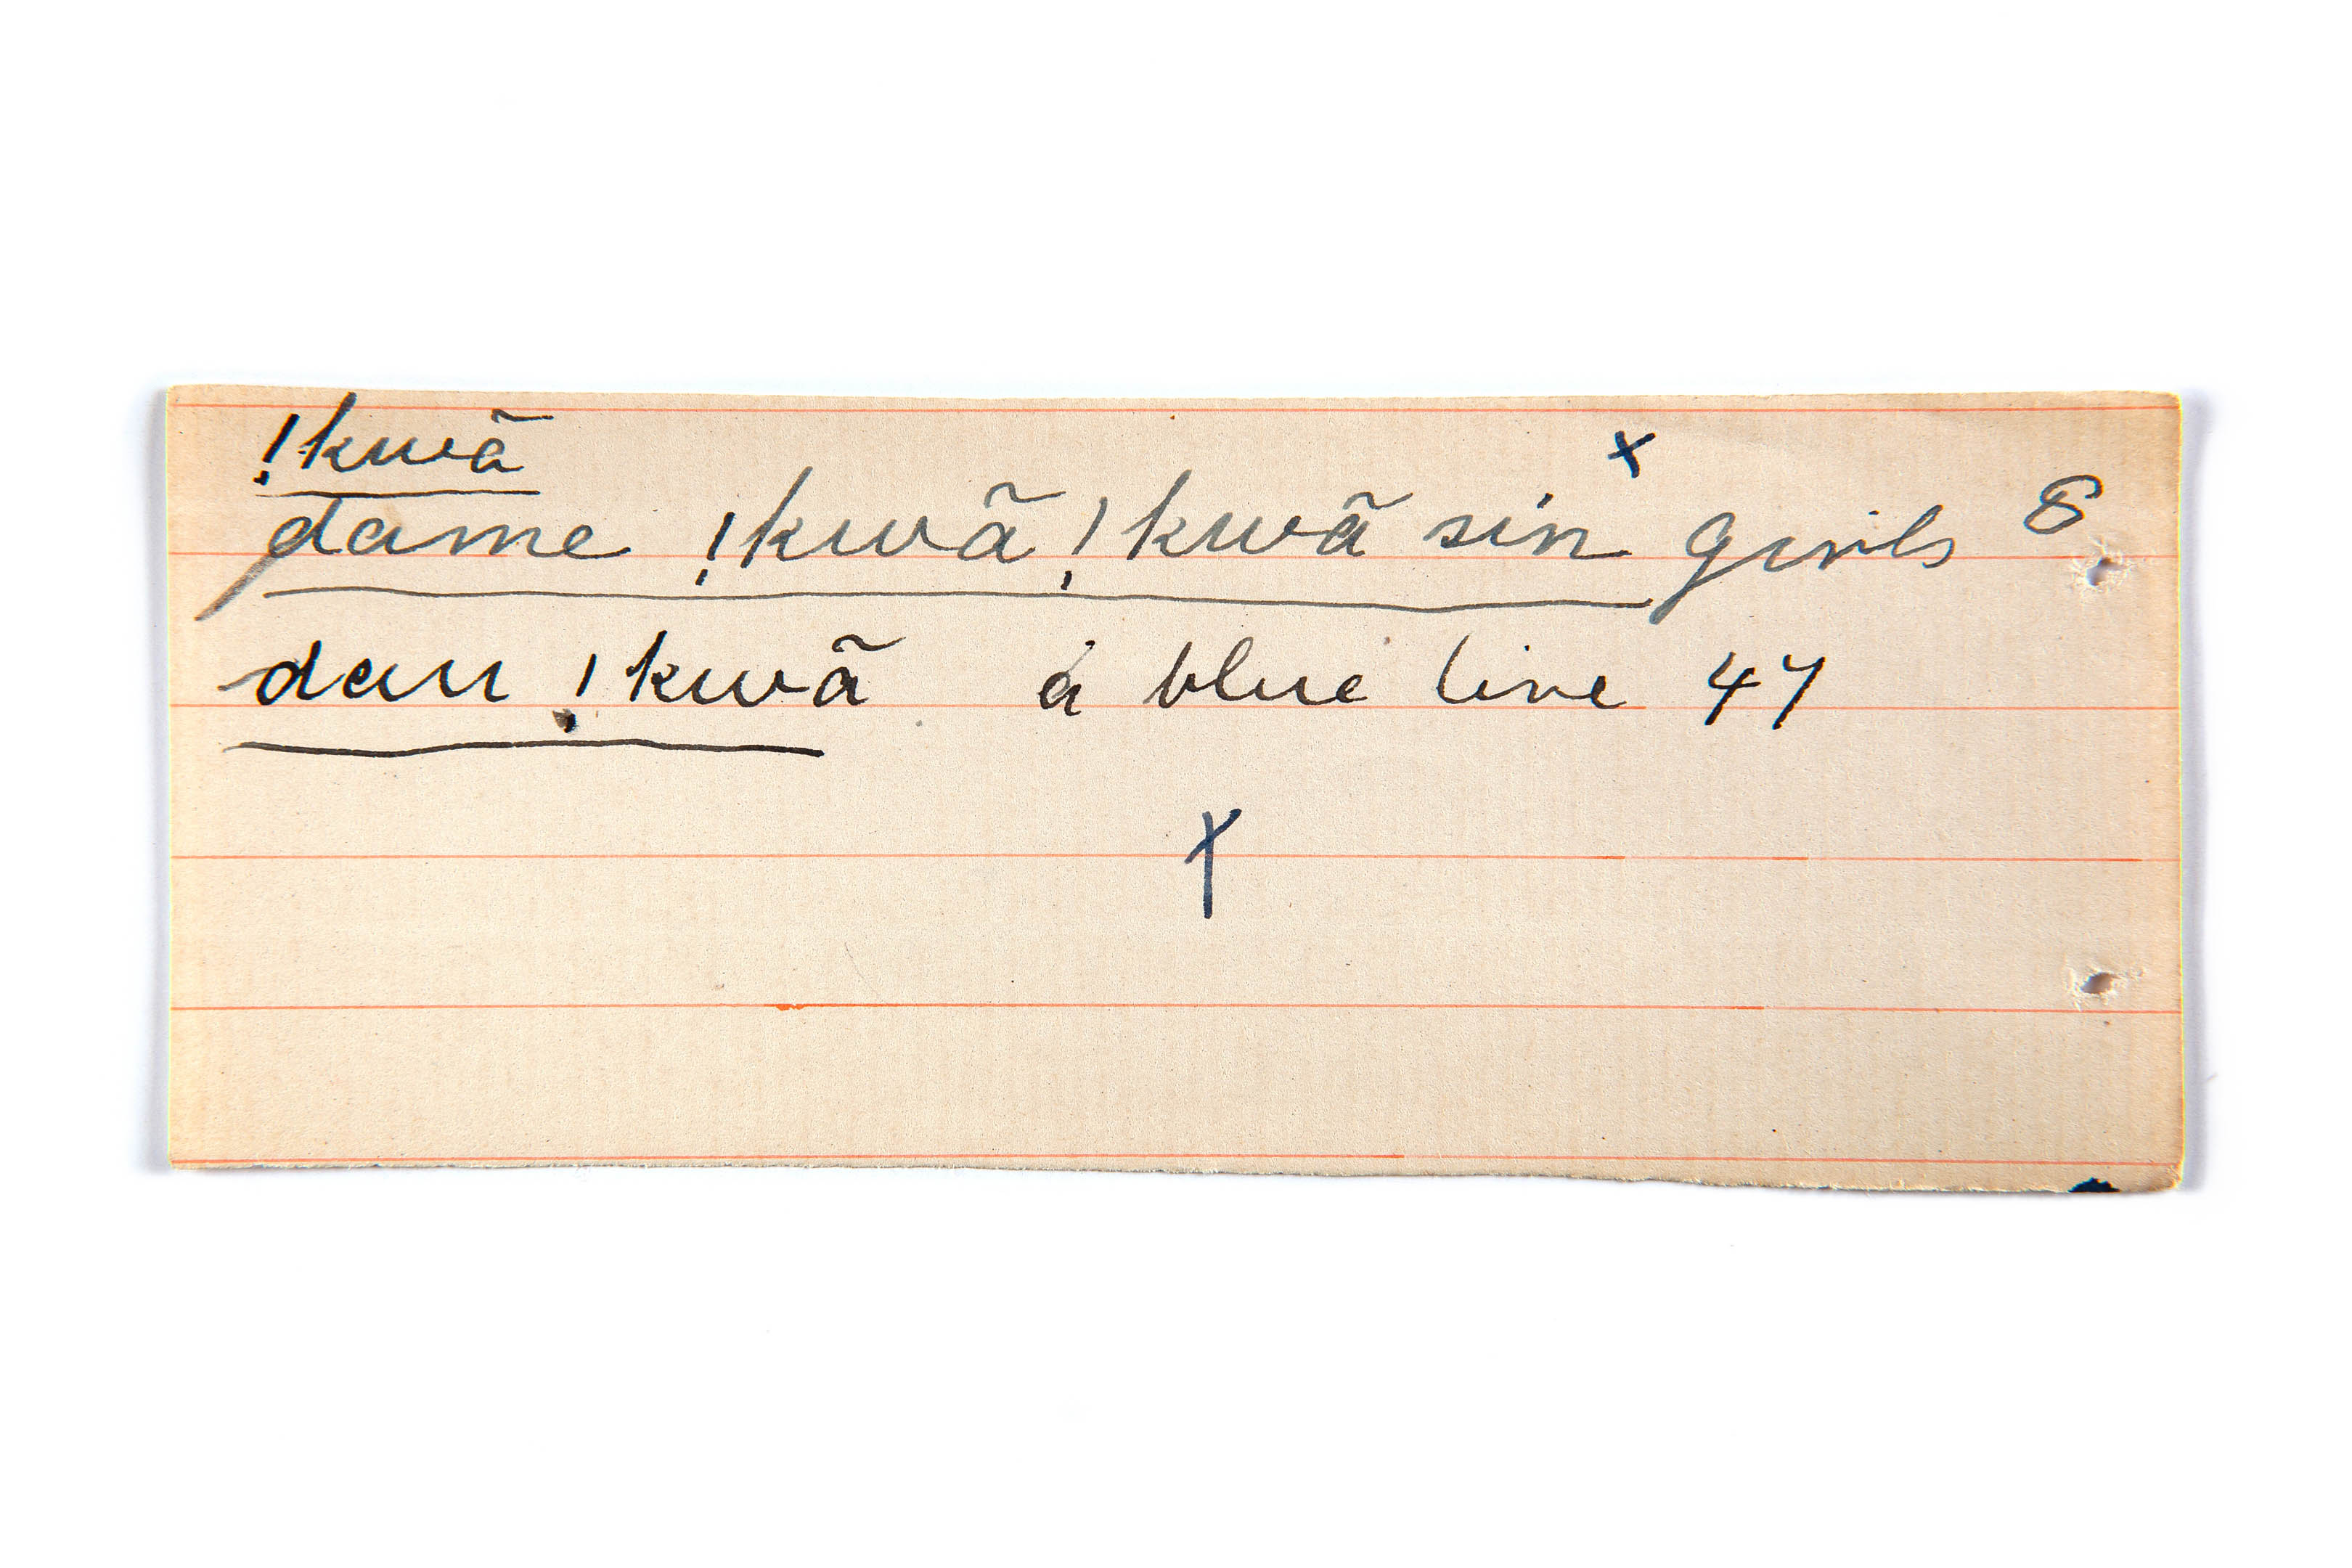 !kwã
x
dame !kwã !kwã sin girls 8
dau !kwã a blue line 47
x